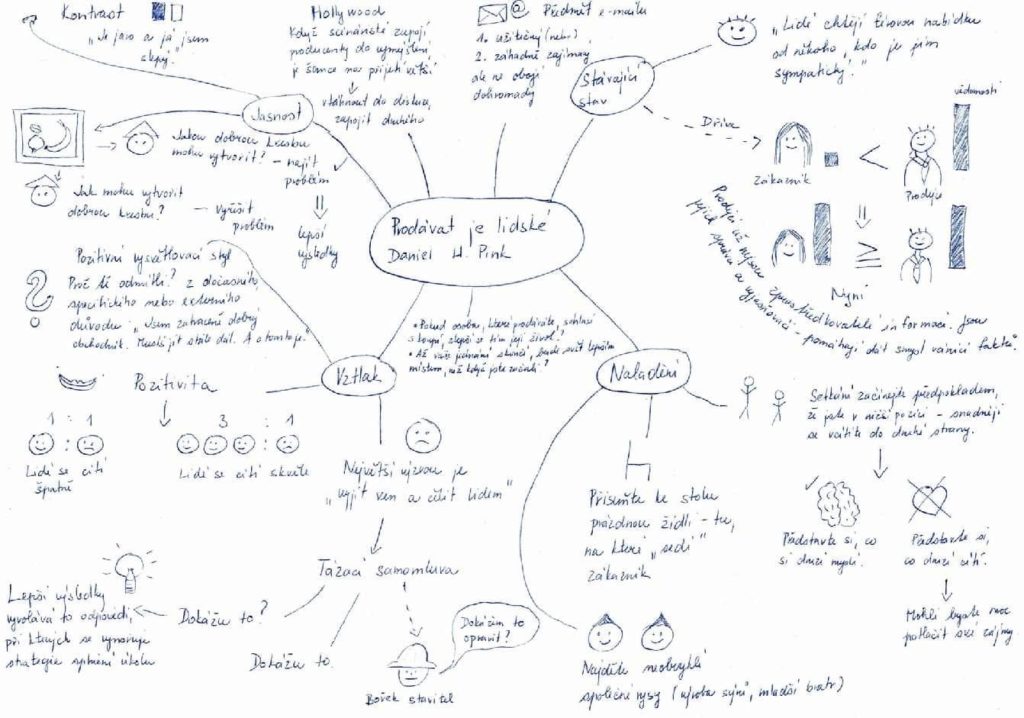 Prodávat je lidské
Daniel H. Pink
Kontrast
„Je jaro a já jsem
slepý."
Jasnost
Jakou dobrou kresbu
mohu vytvořit? – najít
problém
Jak mohu vytvořit
dobrou kresbu?
– vyřešit
problém
lepší
výsledky
Hollywood
Když scénáristé zapojí
producenty do vymýšlení
je šance na přijetí větší
vtáhnout do diskuze,
zapojit druhého
@ Předmět e-mailu
1. užitečný (nebo)
2. záhadně zajímavý
ale ne obojí
dohromady
Stávající
stav
„Lidé chtějí férovou nabídku
od někoho, kdo je jim
sympatický."
Dříve
vědomosti
Zákazník
<
Prodejce
≥
Nyní
Prodejci už nejsou zprostředkovatelé informací. Jsou
jejich správci a vyjasňovači – pomáhají dát smysl vánici faktů.
Naladění
Setkání začínejte předpokladem,
že jste v nižší pozici – snadněji
se vcítíte do druhé strany.
Představte si, co
si druzí myslí.
Představte si,
co druzí cítí.
Mohli byste moc
potlačit své zájmy
Přisuňte ke stolu
prázdnou židli – tu,
na které „sedí"
zákazník
Najděte neobvyklé
společné rysy (výroba sýrů, mladší bratr)
• Pokud osoba, které prodáváte, souhlasí
s koupí, zlepší se tím její život?
• Až vaše jednání skončí, bude svět lepším
místem, než když jste začali?
Vztlak
Pozitivní vysvětlovací styl
Proč tě odmítli? z dočasného,
specifického nebo externího
důvodu. „Jsem zatraceně dobrý
obchodník. Musíš jít stále dál. A o tom to je."
Pozitivita
1 : 1
3 : 1
Lidé se cítí
špatně
Lidé se cítí skvěle
Největší výzvou je
„vyjít ven a čelit lidem"
Tázací samomluva
Dokážu to?
Lepší výsledky
vyvolává to odpovědi,
při kterých se vynoruje
strategie splnění úkolu
Dokážu to.
Dokážem to
opravit?
Bořek stavitel